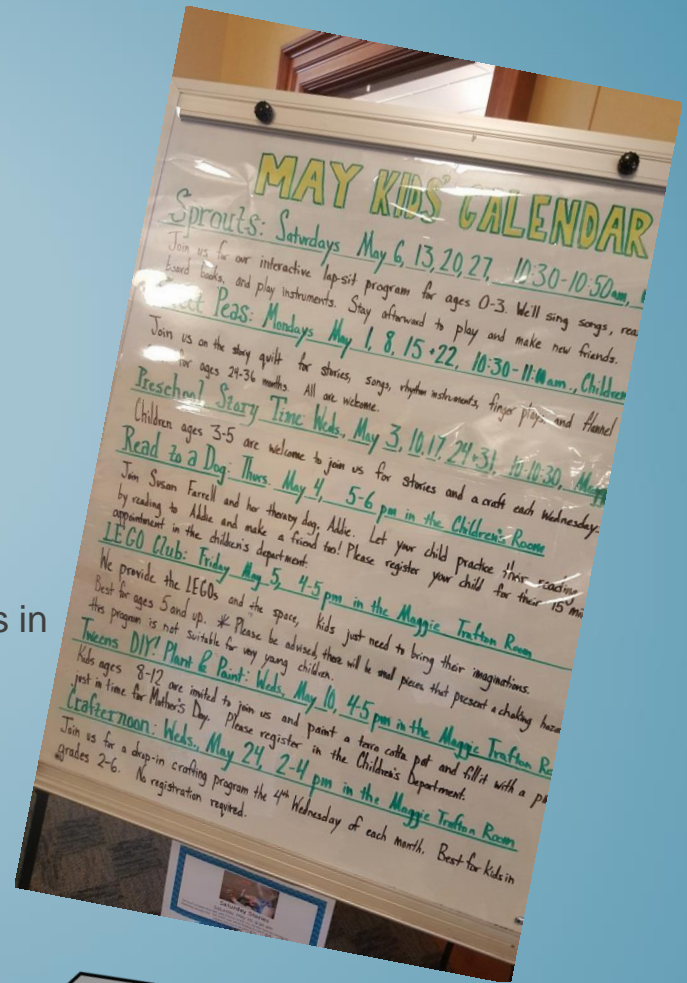 MAY KIDS' CALENDAR
Sprouts: Saturdays May 6, 13, 20, 27, 10:30-10:50am,
Join us for our interactive lap-sit program for ages 0-3. We'll sing songs, rea
board books, and play instruments. Stay afterward to play and make new friends.
Peas: Mondays May 1, 8, 15 + 22, 10:30-11:00am., Children
Join us on the story quilt for stories, songs, rhythm instruments, finger plays, and flannel
for ages 24-36 months. All are welcome.
Preschool Story Time: Weds., May 3, 10, 17, 24+31, 10-10:30, Magg
Children ages 3-5 are welcome to join us for stories and a craft each Wednesday.
Read to a Dog: Thurs. May 4, 5-6 pm in the Children's Room
Join Susan Farrell and her therapy dog, Addie. Let your child practice their reading
by reading to Addie and make a friend too! Please register your child for their 15 min
appointment in the children's department.
LEGO Club: Friday May 5, 4-5 pm in the Maggie Trafton Room
We provide the LEGOs and the space, kids just need to bring their imaginations.
Best for ages 5 and up. * Please be advised, there will be small pieces that present a choking haza
this program is not suitable for very young children.
s in
Tweens DIY! Plant & Paint: Weds, May 10, 4-5 pm in the Maggie Trafton Ro
Kids ages 8-12 are invited to join us and paint a terra cotta pot and fill it with a pl
just in time for Mother's Day. Please register in the Children's Department.
Crafternoon: Weds., May 24, 2-4 pm in the Maggie Trafton Room
Join us for a drop-in crafting program the 4th Wednesday of each month. Best for kids in
grades 2-6. No registration required.
Saturday Stories